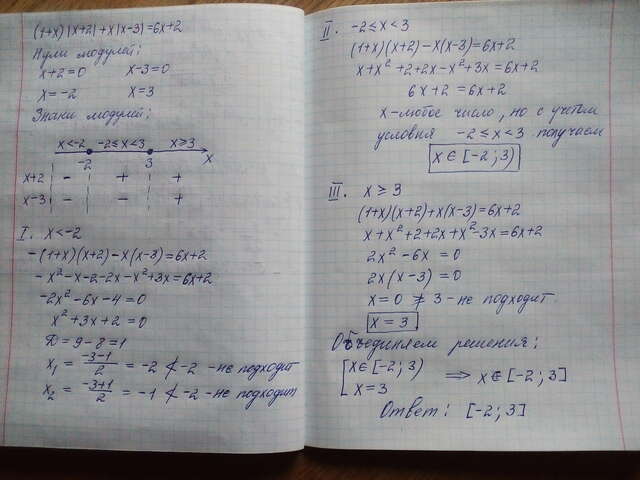 (1+x)|x+2|+x|x-3|=6x+2
Нули модулей:
x+2=0 x-3=0
x=-2 x=3
Знаки модулей:
x<-2 -2≤x<3 x≥3
-2 3 x
x+2 - + +
x-3 - - +
I. x<-2
-(1+x)(x+2)-x(x-3)=6x+2
-x²-x-2-2x-x²+3x=6x+2
-2x²-6x-4=0
x²+3x+2=0
D=9-8=1
x₁=(-3-1)/2=-2≮-2 -не подходит
x₂=(-3+1)/2=-1≮-2 -не подходит
II. -2≤x<3
(1+x)(x+2)-x(x-3)=6x+2
x+x²+2+2x-x²+3x=6x+2
6x+2=6x+2
x-любое число, но с учётом
условия -2≤x<3 получаем
x∈[-2;3)
III. x≥3
(1+x)(x+2)+x(x-3)=6x+2
x+x²+2+2x+x²-3x=6x+2
2x²-6x=0
2x(x-3)=0
x=0≱3-не подходит.
x=3
Объединяем решения:
[x∈[-2;3)
x=3 ⟹ x∈[-2;3]
Ответ: [-2;3]